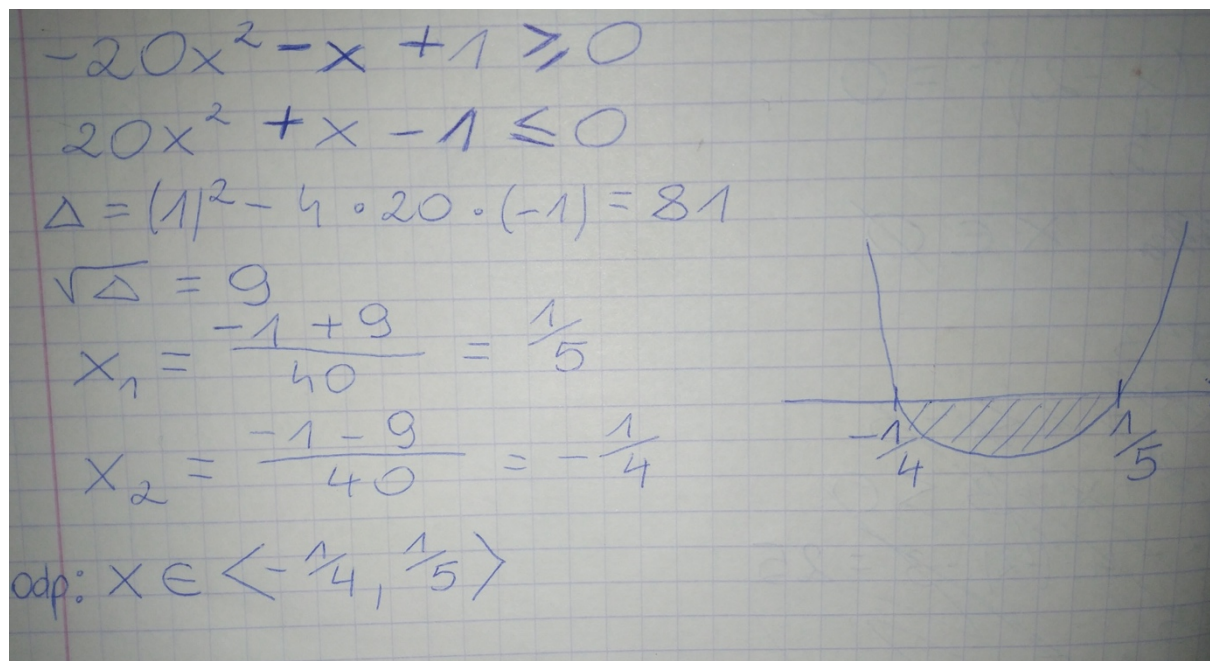 -20x² - x + 1 ⩾ 0
20x² + x - 1 ≤ 0
Δ = (1)² - 4 · 20 · (-1) = 81
√Δ = 9
x₁ = (-1 + 9)/40 = 1/5
x₂ = (-1 - 9)/40 = -1/4
-1/4 1/5
odp: x ∈ <-1/4, 1/5>